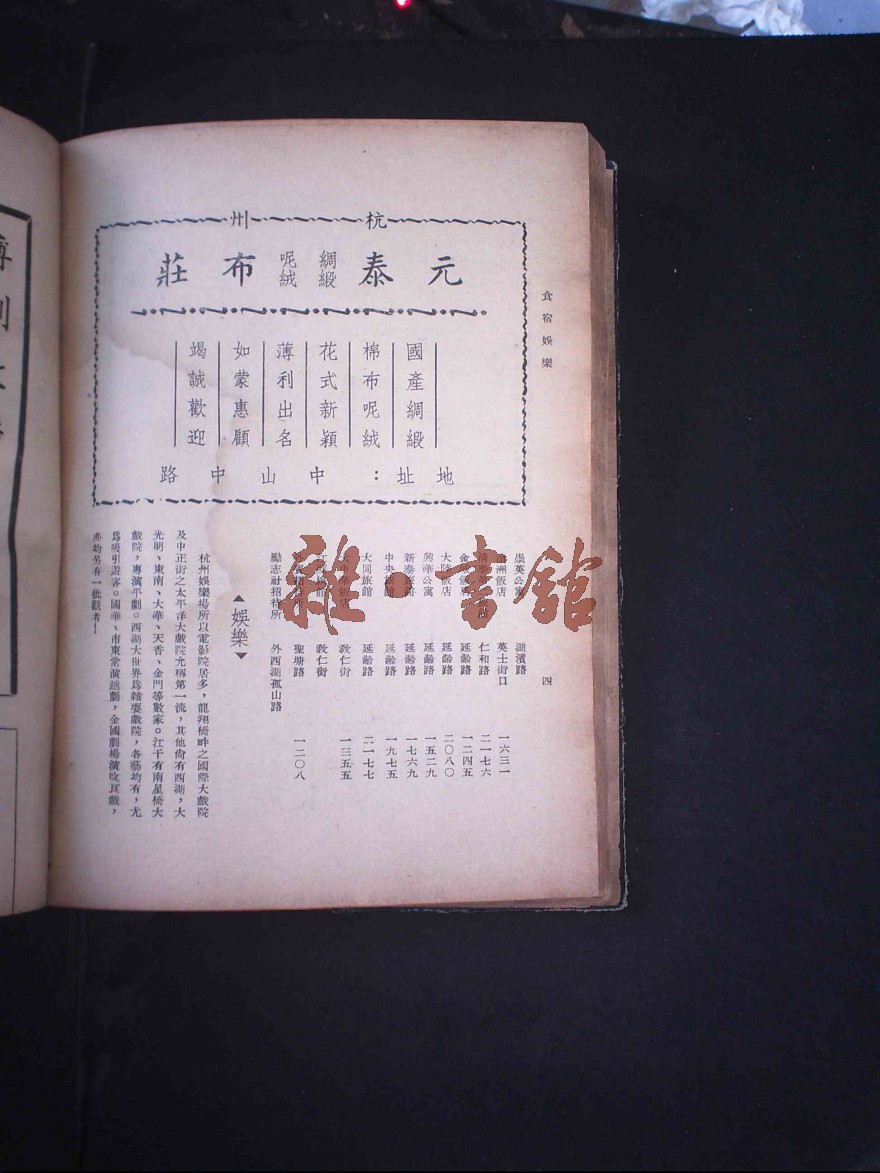 食宿娛樂
四
杭州
元泰綢緞呢絨布莊
國產綢緞
棉布呢絨
花式新穎
薄利出名
如蒙惠顧
竭誠歡迎
地址：中山中路
崇英公寓 湖濱路
洲飯店 英士街口 一六三一
清泰 仁和路 二一七六
金 飯店 延齡路 一二四五
大陸飯店 延齡路 二〇八〇
興華公寓 延齡路 一五二九
新泰旅館 延齡路 一七六九
中央旅館 延齡路 一九七五
大同旅館 延齡路 二一七七
中華飯店 敎仁街 一三五五
敎仁街
聖塘路 一二〇八
勵志社招待所 外西湖孤山路
▲娛樂▼
杭州娛樂場所以電影院居多，龍翔橋畔之國際大戲院
及中正街之太平洋大戲院允稱第一流，其他尙有西湖，大
光明、東南、大華、天香、金門等數家。江干有南星橋大
戲院，專演平劇。西湖大世界爲雜耍戲院，各藝均有，尤
爲吸引遊客。國華、市東常演越劇，金國劇場演改良戲，
亦均另有一批觀者！
雜·書館